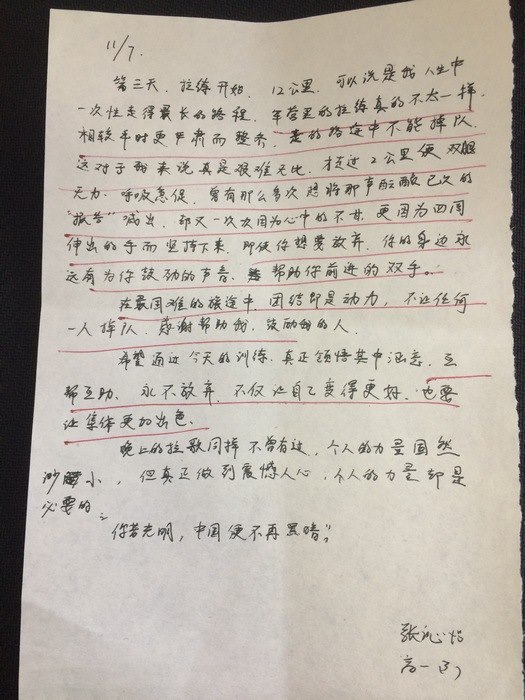 11/7.
第三天,拉练开始,12公里,可以说是我人生中
一次性走得最长的路程,军营里的拉练真的不太一样,
相较平时更严肃而整齐,走的路途中不能掉队,
这对于我来说真是艰难无比,才走过2公里便双腿
无力,呼吸急促,曾有那么多次想将那声酝酿已久的
“报告”喊出,却又一次次因为心中的不甘,更因为四周
伸出的手而坚持下来,即使你想要放弃,你的身边永
远有为你鼓劲的声音,帮助你前进的双手。
在最困难的旅途中,团结却是动力,不让任何
一人掉队,感谢帮助我,鼓励我的人,
希望通过今天的训练,真正领悟其中涵意,互
帮互助,永不放弃,不仅让自己变得更好,也要
让集体更加出色。
晚上的拉歌同样不曾有过,个人的力量固然
渺小,但真正做到震憾人心,个人的力量却是
必要的,
你若光明,中国便不再黑暗。
张沁怡
高一